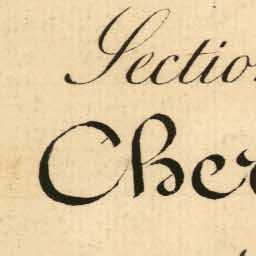 Sectio
Cher